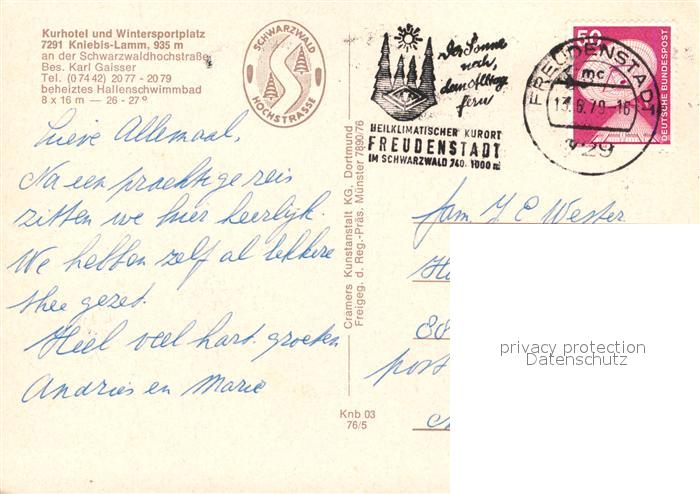 Kurhotel und Wintersportplatz
7291 Kniebis-Lamm, 935 m
an der Schwarzwaldhochstraße
Bes. Karl Gaisser
Tel. (07442) 2077 - 2079
beheiztes Hallenschwimmbad
8 x 16 m — 26 - 27°
SCHWARZWALD
HOCHSTRASSE
Der Sonne
nah,
dem Alltag
fern
HEILKLIMATISCHER KURORT
FREUDENSTADT
IM SCHWARZWALD 740-1000 m
FREUDENSTADT 1
mc
13.6.79-16
729
50
DEUTSCHE BUNDESPOST
Lieve Allemaal,
Na een prachtige reis
zitten we hier heerlijk.
We hebben zelf al lekkere
thee gezet.
Heel veel hart. groeten
Andries en Marie
Cramers Kunstanstalt KG, Dortmund
Freigeg. d. Reg.-Präs. Münster 7890/76
Knb 03
76/5
fam. J E Wester
88
post
privacy protection
Datenschutz